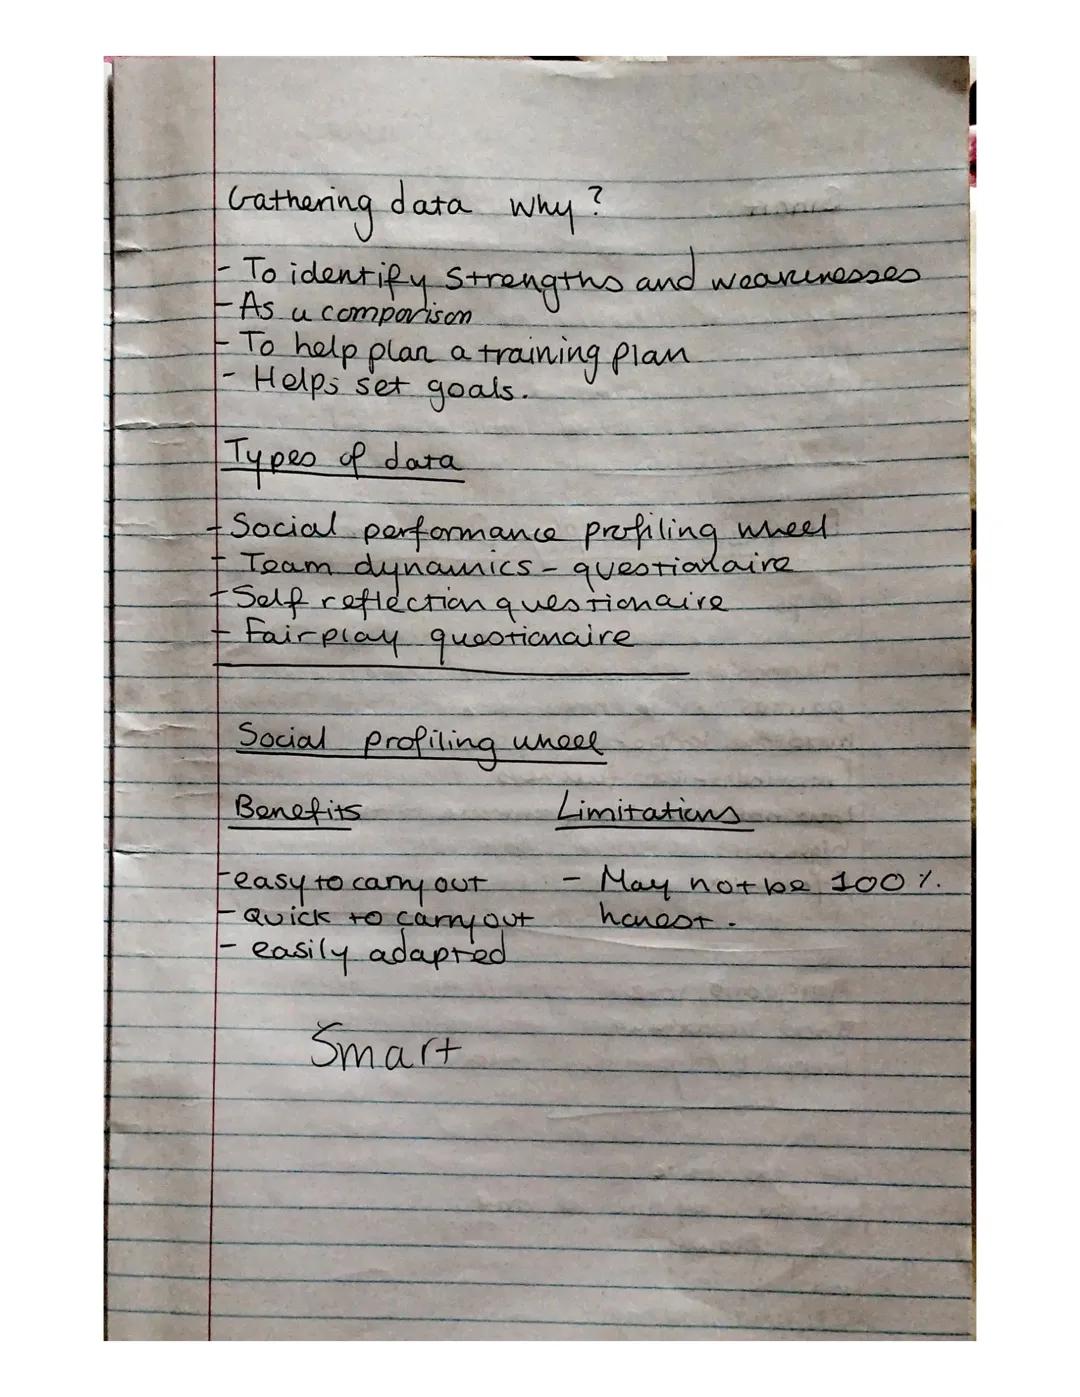 Gathering data why?
- To identify strengths and weaknesses
- As a comparison
- To help plan a training plan
- Helps set goals.
Types of data
- Social performance profiling wheel
- Team dynamics - questionaire
- Self reflection questionaire
- Fairplay questionaire
Social profiling wheel
Benefits Limitations
- easy to carry out - May not be 100%
- Quick to carry out honest.
- easily adapted
Smart